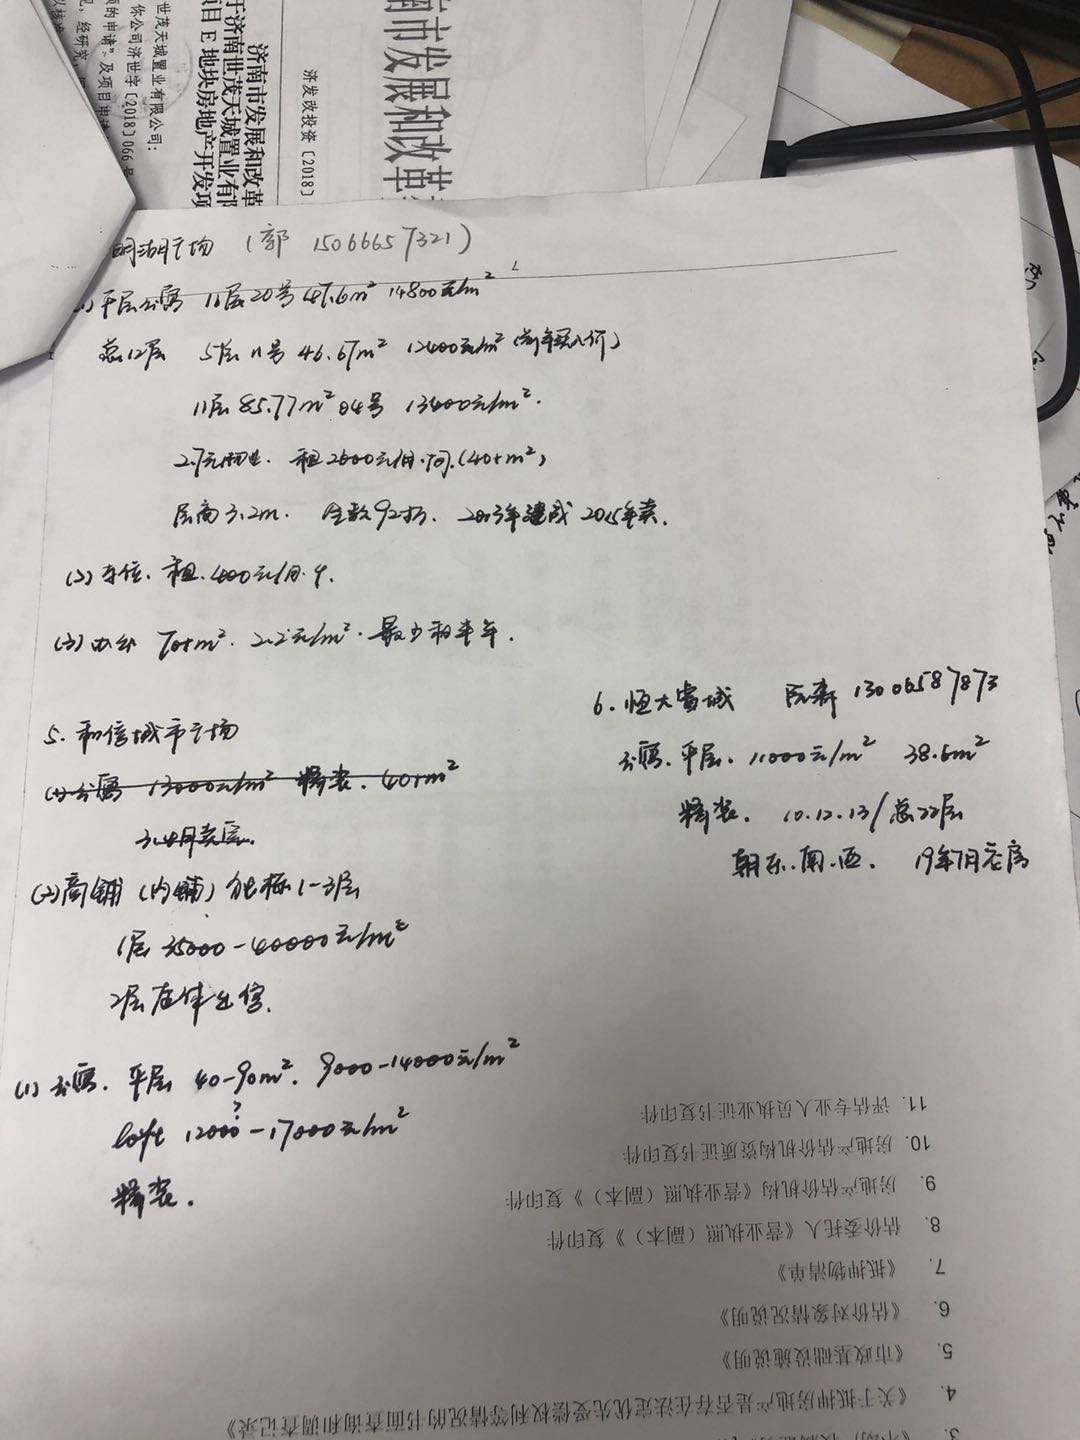 济南市发展和改革
于济南世茂天城置业有限
项目 E 地块房地产开发项
济发改投资〔2018〕
南市发展和改革
世茂天城置业有限公司：
你公司济世字〔2018〕066 号
的申请”及项目申请
经研究
明湖广场 (郭 15066657321)
平层公寓 11层20号 47.6m² 14800元/m²
总12层 5层11号 46.67m² 12400元/m² (前年买入价)
11层 85.77m² 04号 13400元/m².
2.7元物业. 租2000元/月·间.(40+m²)
层高3.2m. 全款92折. 2013年建成 2015年卖.
(2) 车位. 租.400元/月·个.
(3) 办公 70+m². 2.2元/m². 最少租半年.
5. 和信城市广场
(1) 公寓 13000元/m² 精装. 40+m²
3.4月卖完.
(2) 商铺 (内铺) 1-3层
1层 35000-40000元/m²
2层 整体出售.
(1) 公寓. 平层 40-90m². 9000-14000元/m²
loft 12000?-17000元/m²
精装.
6. 恒大奥城 13006587873
公寓. 平层. 11000元/m² 38.6m²
精装. 10.12.13/总22层
朝东.南.西. 19年7月交房
11. 评估专业人员执业证书复印件
10. 房地产估价机构资质证书复印件
9. 房地产估价机构《营业执照（副本）》复印件
8. 估价委托人《营业执照（副本）》复印件
7. 《抵押物清单》
6. 《估价对象情况说明》
5. 《市政基础设施说明》
4. 《关于抵押房地产是否存在法定优先受偿权利等情况的书面查询和调查记录》
3.